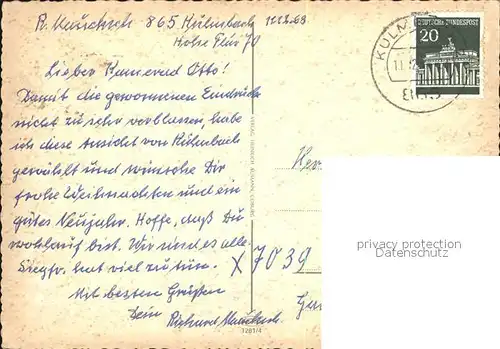 R. Mauschuh 865 Kulmbach 11.12.69
Hohe Flur 70
Lieber Kamerad Otto!
Damit die gewonnenen Eindrücke
nicht zu sehr verblassen, habe
ich diese Ansicht von Kulmbach
gewählt und wünsche Dir
frohe Weihnachten und ein
gutes Neujahr. Hoffe, daß Du
wohlauf bist. Wir sind es alle.
hat viel zu tun.
Mit besten Grüßen
Dein
Richard
DEUTSCHE BUNDESPOST
20
KULM
Her
X 7039
privacy protection
Datenschutz
7201/4